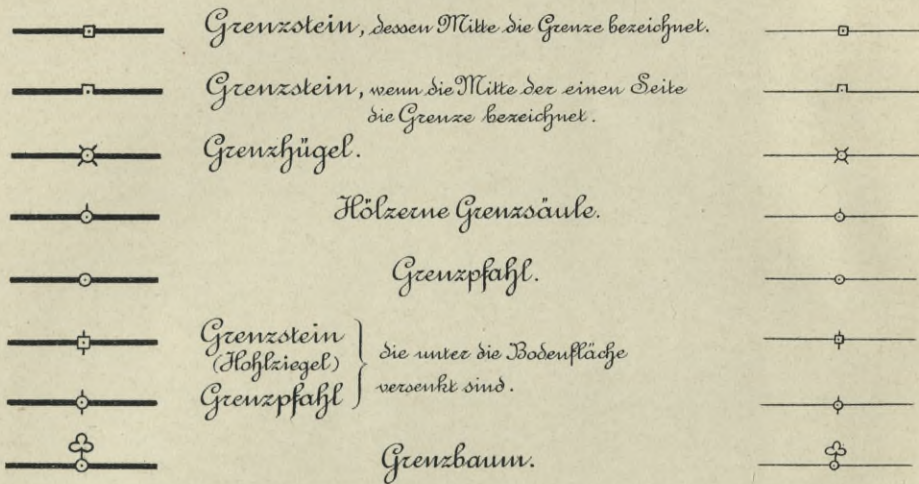 Grenzstein, dessen Mitte die Grenze bezeichnet.
Grenzstein, wenn die Mitte der einen Seite
die Grenze bezeichnet.
Grenzhügel.
Hölzerne Grenzsäule.
Grenzpfahl.
Grenzstein
(Hohlziegel)
die unter die Bodenfläche
Grenzpfahl
versenkt sind.
Grenzbaum.